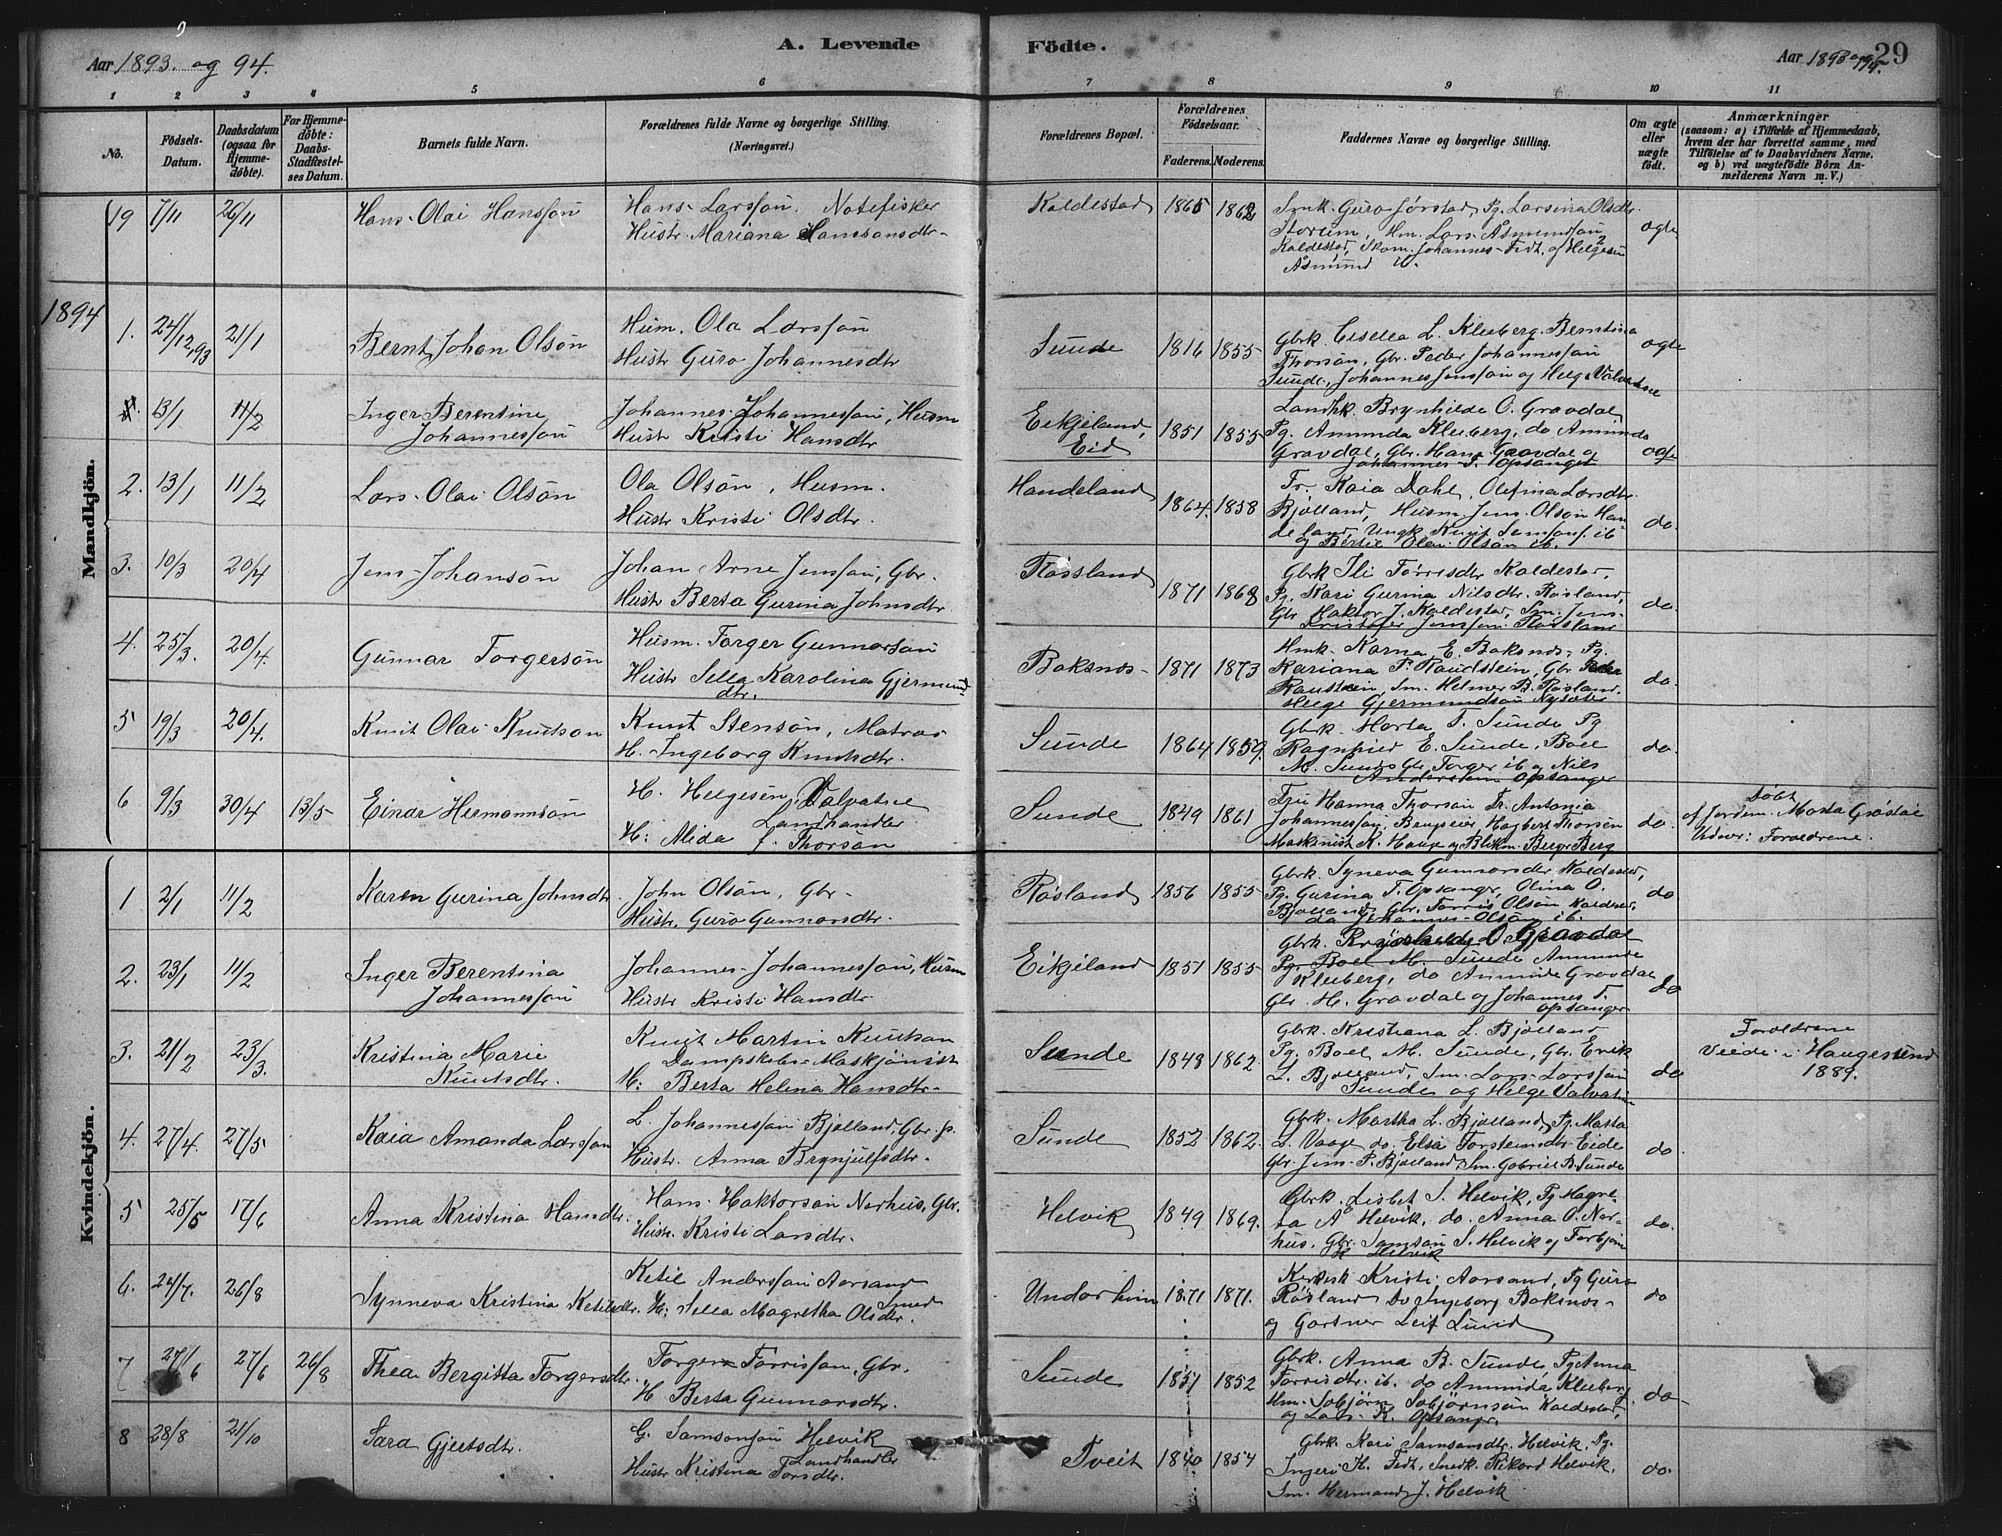 Aar 1893. og 94.
A. Levende
Födte.
Aar 1893 og 94.
29
1 2 3 4 5 6 7 8 9 10 11
No.
Födsels-
Datum.
Daabsdatum
(ogsaa for
Hjemme-
döbte).
For Hjemme-
döbte:
Daabs-
Stadfæstel-
ses Datum.
Barnets fulde Navn.
Forældrenes fulde Navne og borgerlige Stilling.
(Næringsvei.)
Forældrenes Bopæl.
Forældrenes
Födselsaar.
Faderens. Moderens.
Faddernes Navne og borgerlige Stilling.
Om ægte
eller
uægte
födt.
Anmærkninger
(saasom: a) i Tilfælde af Hjemmedaab,
hvem der har forrettet samme, med
Tilföielse af to Daabsvidners Navne,
og b) ved uægtefödte Börn An-
melderens Navn m. V.)
Mandkjön.
19 7/11 26/11 Hans Olai Hansson
Hans Larsson. Notefisker
Hustr. Mariana Hansdtr.
Koldestad 1865 1862
Smk. Guro Jørstad, Pg. Larsina Olsdtr.
Storum, Hm. Lars Asmundson
Koldestad, Johannes Fedt, og Helgesen
Asmund ib.
ægte
1894
1. 24/12 93 21/1 Bernt Johan Olsön
Husm. Ola Larsson
Hustr Guro Johannesdtr
Sunde 1816 1855
Gbrk. L. Kleiberg. Berntina
Thorsön, Gbr. Peder Johannesson
Sunde, Johannes Jensson og Helge Valvatne
ægte
13/1 11/2 Inger Berentine
Johannesson
Johannes Johannesson, Husm
Hustr Kristi Hansdtr
Eikjeland,
Eid
1851 1855
Landhk. Brynhilde O. Gravdal
Pg. Amunda Kleiberg, do Amunda
Gravdal, Gbr. Hans Gravdal og
Johannes T. Opsanger
2. 13/1 11/2 Lars Olai Olsön
Ola Olsön, Husm.
Hustr Kristi Olsdtr.
Handeland 1864. 1858
Fr. Kaia Dahl, Olefina Larsdtr.
Bjolland, Husm. Jens Olson Han
deland, Ungk. Knut Samsons. ib
og Bertil Olai Olsön ib.
do.
3. 10/3 20/4 Jens Johansön
Johan Arne Jensson, Gbr.
Hustr Berta Gurina Johnsdtr.
Røssland 1871 1868
Gbrk Ili Torrisdtr Koldestad,
Pg. Kari Gurina Nilsdtr. Røsland
Gbr Haktor J. Koldestad, Sm. Jens
Kristofer Jensson Røssland
do.
4. 25/3. 20/4. Gunnar Torgersön
Husm. Torger Gunnarson
Hustr Sella Karolina Gjermund
dtr.
Boksnes 1871 1873
Hmk. Karna E. Boksnes, Pg.
Kariana P. Raudstein, Gbr. Peder
Raustein, Sm. Helmer B. Røsland.
Helge Gjermundsön Nysæter
do.
5 19/3 20/4. Knut Olai Knutson
Knut Stensön, Matros
H. Ingeborg Knutsdtr.
Sunde 1864 1859.
Gbrk. Marta T. Sunde Pg
Ragnhild E. Sunde, Boel
M. Sunde Gbr. Torger ib og Nils
Anderson Opsanger
do.
6 9/3 30/4 13/5 Einar Hermannsön
H. Helgesen Valvatne
Landhandler
H: Alida f. Thorsön
Sunde 1849 1861
Frü Hanna Thorsön Fr. Antonia
Johannesson, Brugseier Hagbert Thorsen
Maskinist K. Hauge og Blikm. Berge Berg
do.
Døbt
af Jordm. Marta
Vidner: Forældrene.
Kvindekjön.
1 2/1 11/2 Karen Gurina Johnsdtr.
John Olsön, Gbr.
Hustr. Guro Gunnarsdtr.
Røsland 1856 1855
Gbrk. Syneva Gunnarsdtr Koldestad,
Pg. Gurina T. Opsanger, Olina O.
Bjolland, Gbr. Torris Olsön Koldestad,
do Johannes Olsön ib.
do
2. 23/1 11/2 Inger Berentina
Johannesson
Johannes Johannesson, Husm
Hustr Kristi Hansdtr.
Eikjeland 1851 1855
Gbrk. Brynhilde O Gravdal
Pg. Boel M. Sunde Amunde
Kleiberg, do Amunde Gravdal
Gbr. H. Gravdal og Johannes T.
Opsanger
do
3. 21/2 23/3. Kristina Marie
Knutsdtr.
Knut Martin Knutson
Dampskibs-Maskjinist
H: Berta Helena Hansdtr.
Sunde 1848 1862.
Gbrk. Kristiana L. Bjolland
Pg. Boel M. Sunde, Gbr. Erik
L. Bjolland, Sm. Lars Larsson
Sunde og Helge Valvatne
do
Forældrene
Viede i Haugesund
1889.
4. 27/4. 27/5 Kaia Amanda Larsson
L. Johannesson Bjolland, Gbr. p.
Hustr. Anna Brynjulfsdtr.
Sunde 1852 1862.
Gbrk. Martha L. Bjolland, Pg. Marta
L. Vaage do. Elsa Torsteinsdtr. Eide
Gbr Jens P. Bjolland, Sm. Gabriel B. Sunde
do.
5 25/5 17/6 Anna Kristina Hansdtr.
Hans Haktorson Norhus, Gbr.
Hustr. Kristi Larsdtr.
Helvik 1849 1869.
Gbrk. Lisbet S. Helvik, Pg Magre-
ta A Helvik, do. Anna O. Nor-
hus, Gbr. Samson S. Helvik og Torbjørn
K Helvik
do.
6. 24/7. 26/8 Synneva Kristina Ketilsdtr.
Ketil Andersson Aarsand
Smed
H: Sella Magretha Olsdtr.
Undarheim 1871 1871.
Kristi Aarsand, Pg Guro
Røsland Do Ingeborg Boksnes
og Gartner Leif Lund
do
7 27/6 27/6 26/8 Thea Bergitta Torgersdtr.
Torger Torrisson, Gbr.
H Berta Gunnarsdtr.
Sunde 1851 1852
Gbrk. Anna B. Sunde, Pg Anna
Torrisdtr. ib. do Amunda Kleiberg
Hm. Sobjørn Sobjørnsön Koldestad,
og Lars K. Opsangr.
do
8 28/8 21/10 Sara Gjertsdtr.
G. Samsonson Helvik
Landhandler
Hustr Kristina Torsdtr.
Tveit 1840 1854
Gbrk. Kari Samsonsdtr. Helvik, Pg.
Ingerø H. Fedt, Snedk. Rikard Helvik,
Sm. Hermand J. Helvik
do.